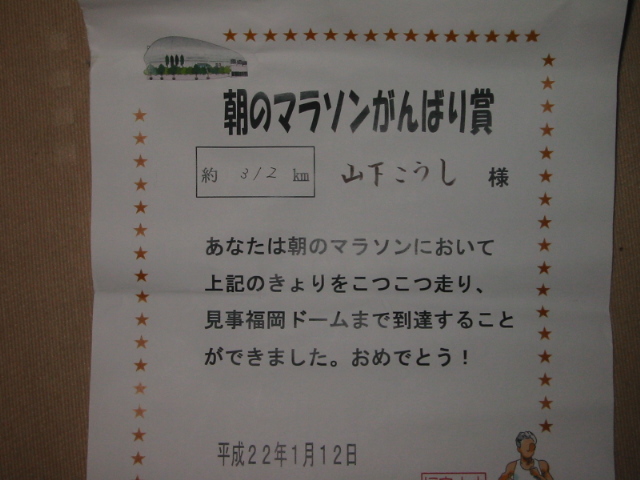 朝のマラソンがんばり賞
約 312 km 山下こうし 様
あなたは朝のマラソンにおいて
上記のきょりをこつこつ走り、
見事福岡ドームまで到達すること
ができました。おめでとう！
平成22年1月12日